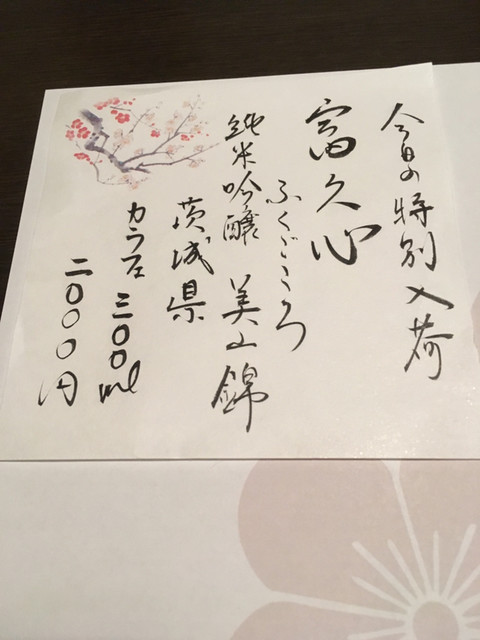 今日の特別入荷
富久心
ふくごころ
純米吟醸 美山錦
茨城県
カラフェ 三〇〇ml
二〇〇〇円